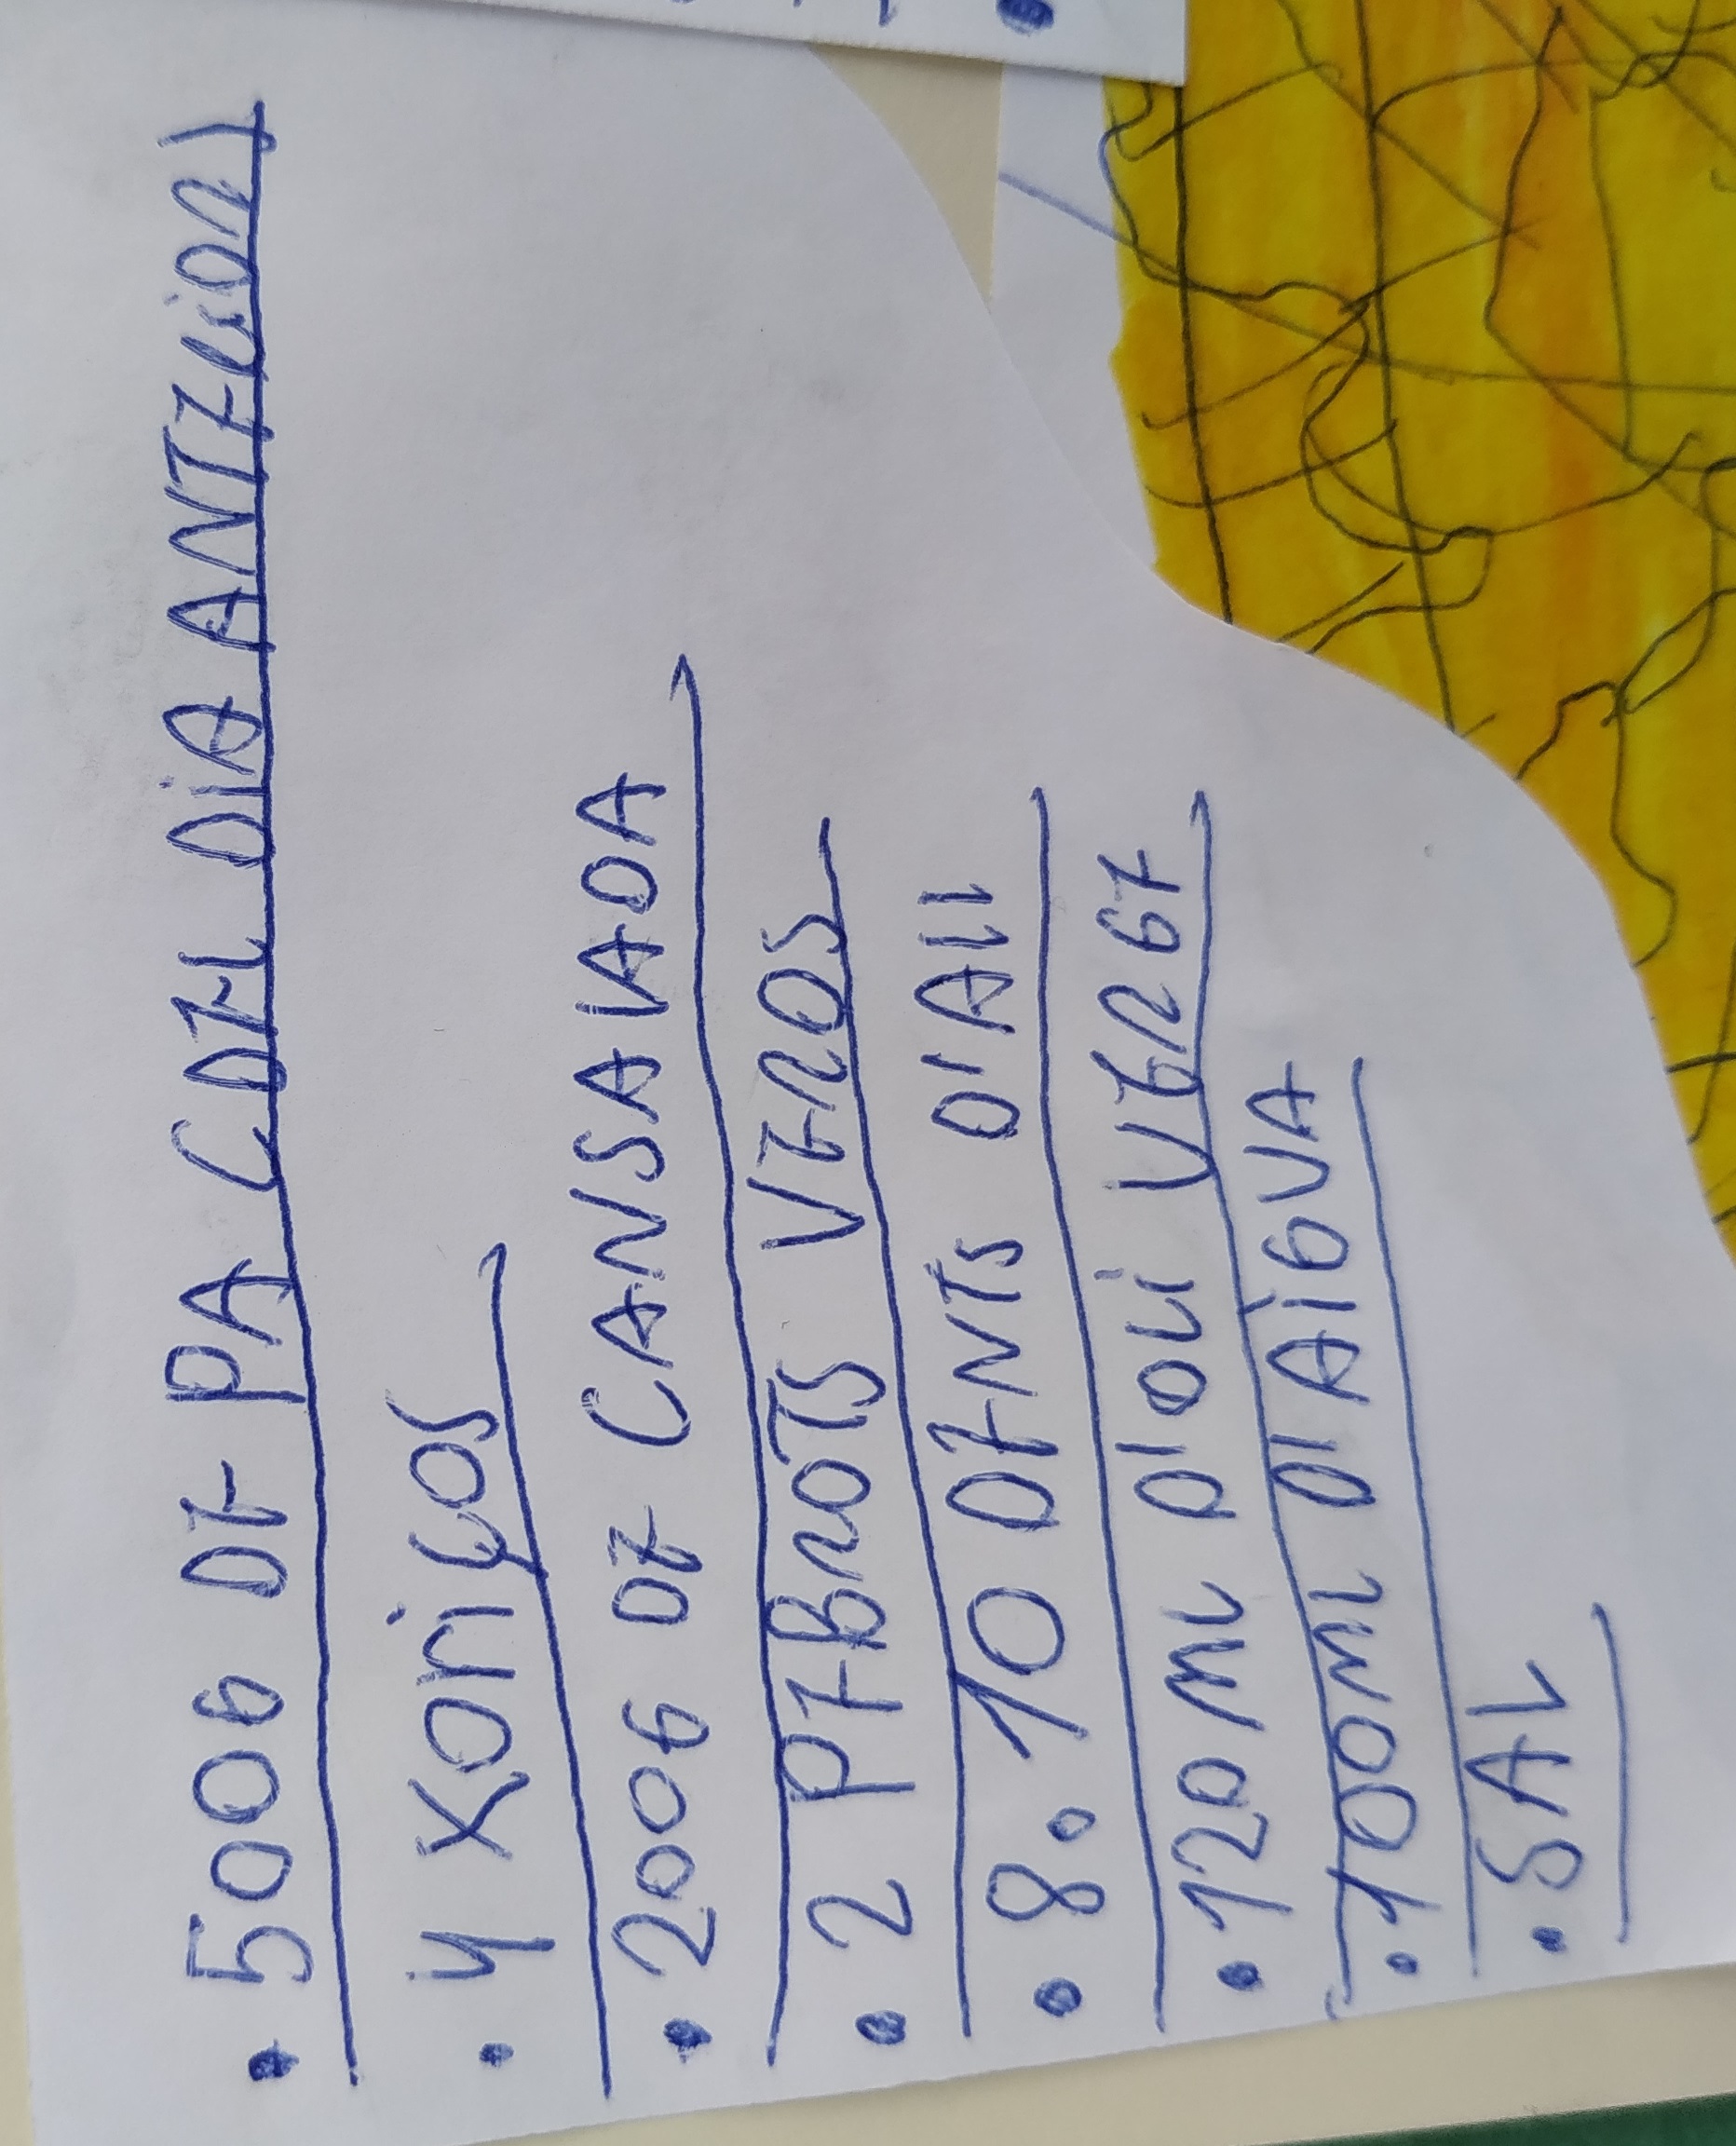 • 500G DE PA (DEL DIA ANTERIOR)
• 4 XORIÇOS
• 200G DE CANSALADA
• 2 PEBROTS VERDS
• 8.10 DENTS D'ALL
• 120 ML D'OLI VERGE
• 100 ML D'AIGUA
• SAL